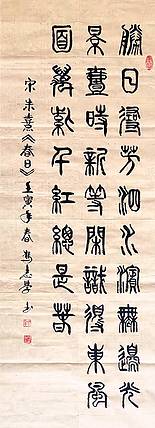 勝日尋芳泗水濱無邊光
景壹時新等閑識得東風
面萬紫千紅總是春
宋朱熹《春日》壬寅年春书